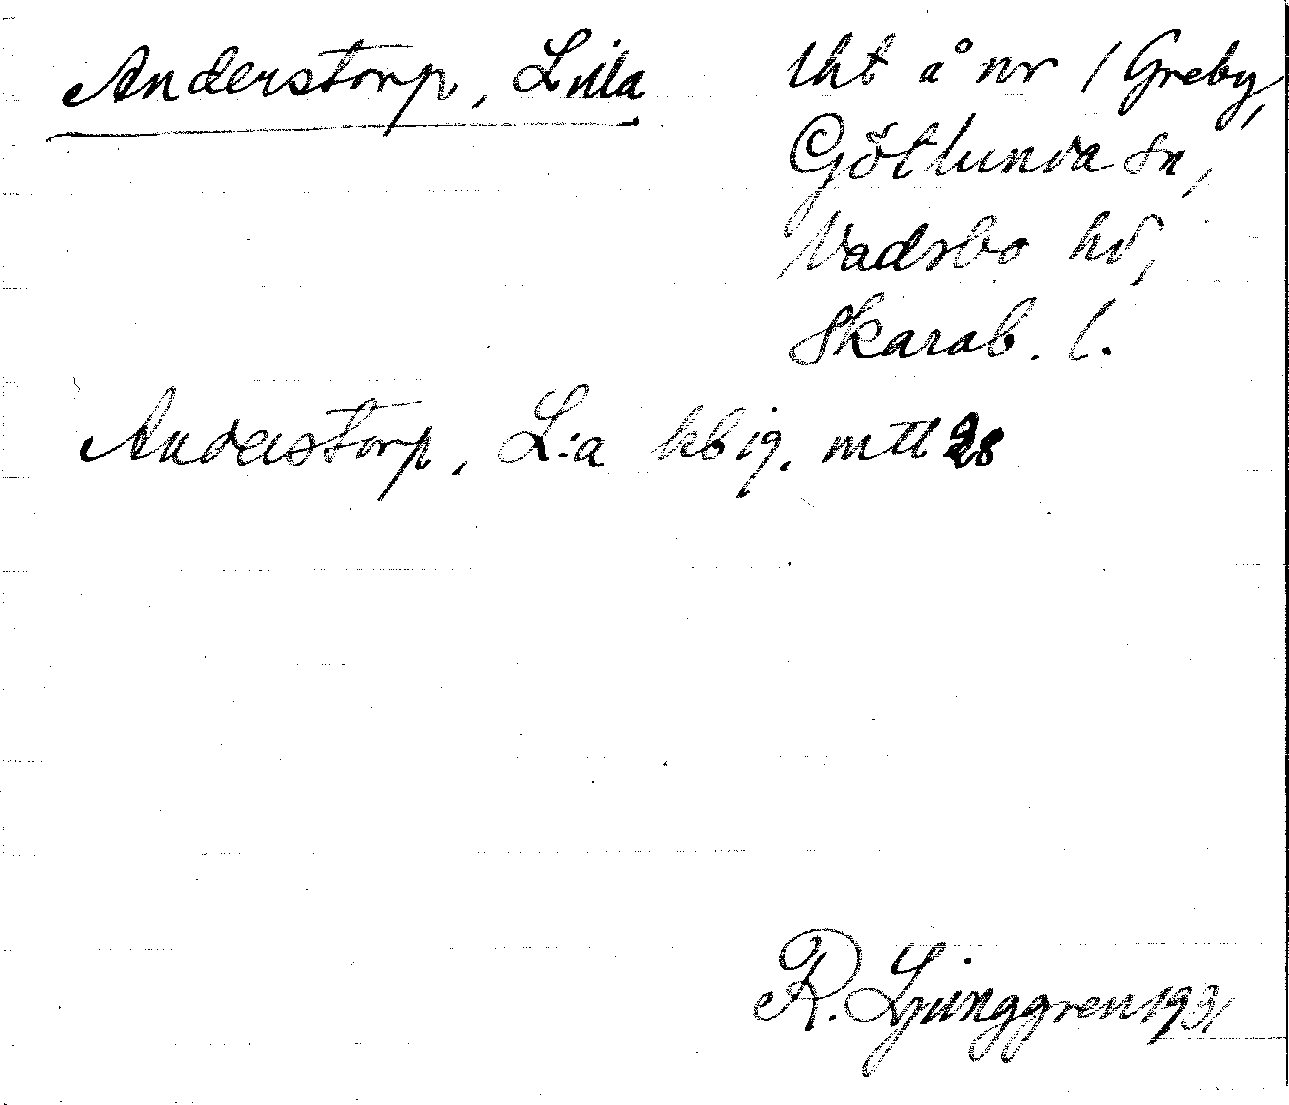 Anderstorp, Lilla
lht å nr 1 Greby,
Götlunda sn,
Vadsbo hd,
Skarab. l.
Anderstorp, L:a hbig. mtl 28
R. Ljunggren 1931